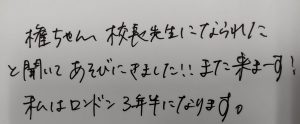 権ちゃん 校長先生になられた
と聞いてあそびにきました!! また来まーす!
私はロンドン3年半になります。